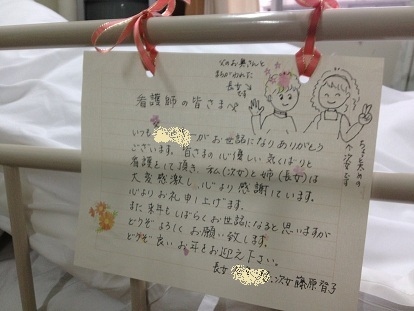 父のお奥さんと
まちがわれた
長女
です
ちょっと太めの
次女です
看護師の皆さまへ
いつも
がお世話になりありがとう
ございます。皆さまの心優しい気くばりと
看護をして頂き、私(次女)と姉(長女)は
大変感激し、心より感謝しています。
心よりお礼申し上げます。
また来年もしばらくお世話になると思いますが
どうぞよろしくお願い致します。
どうぞ良いお年をお迎え下さい。
長女
次女 藤原智子